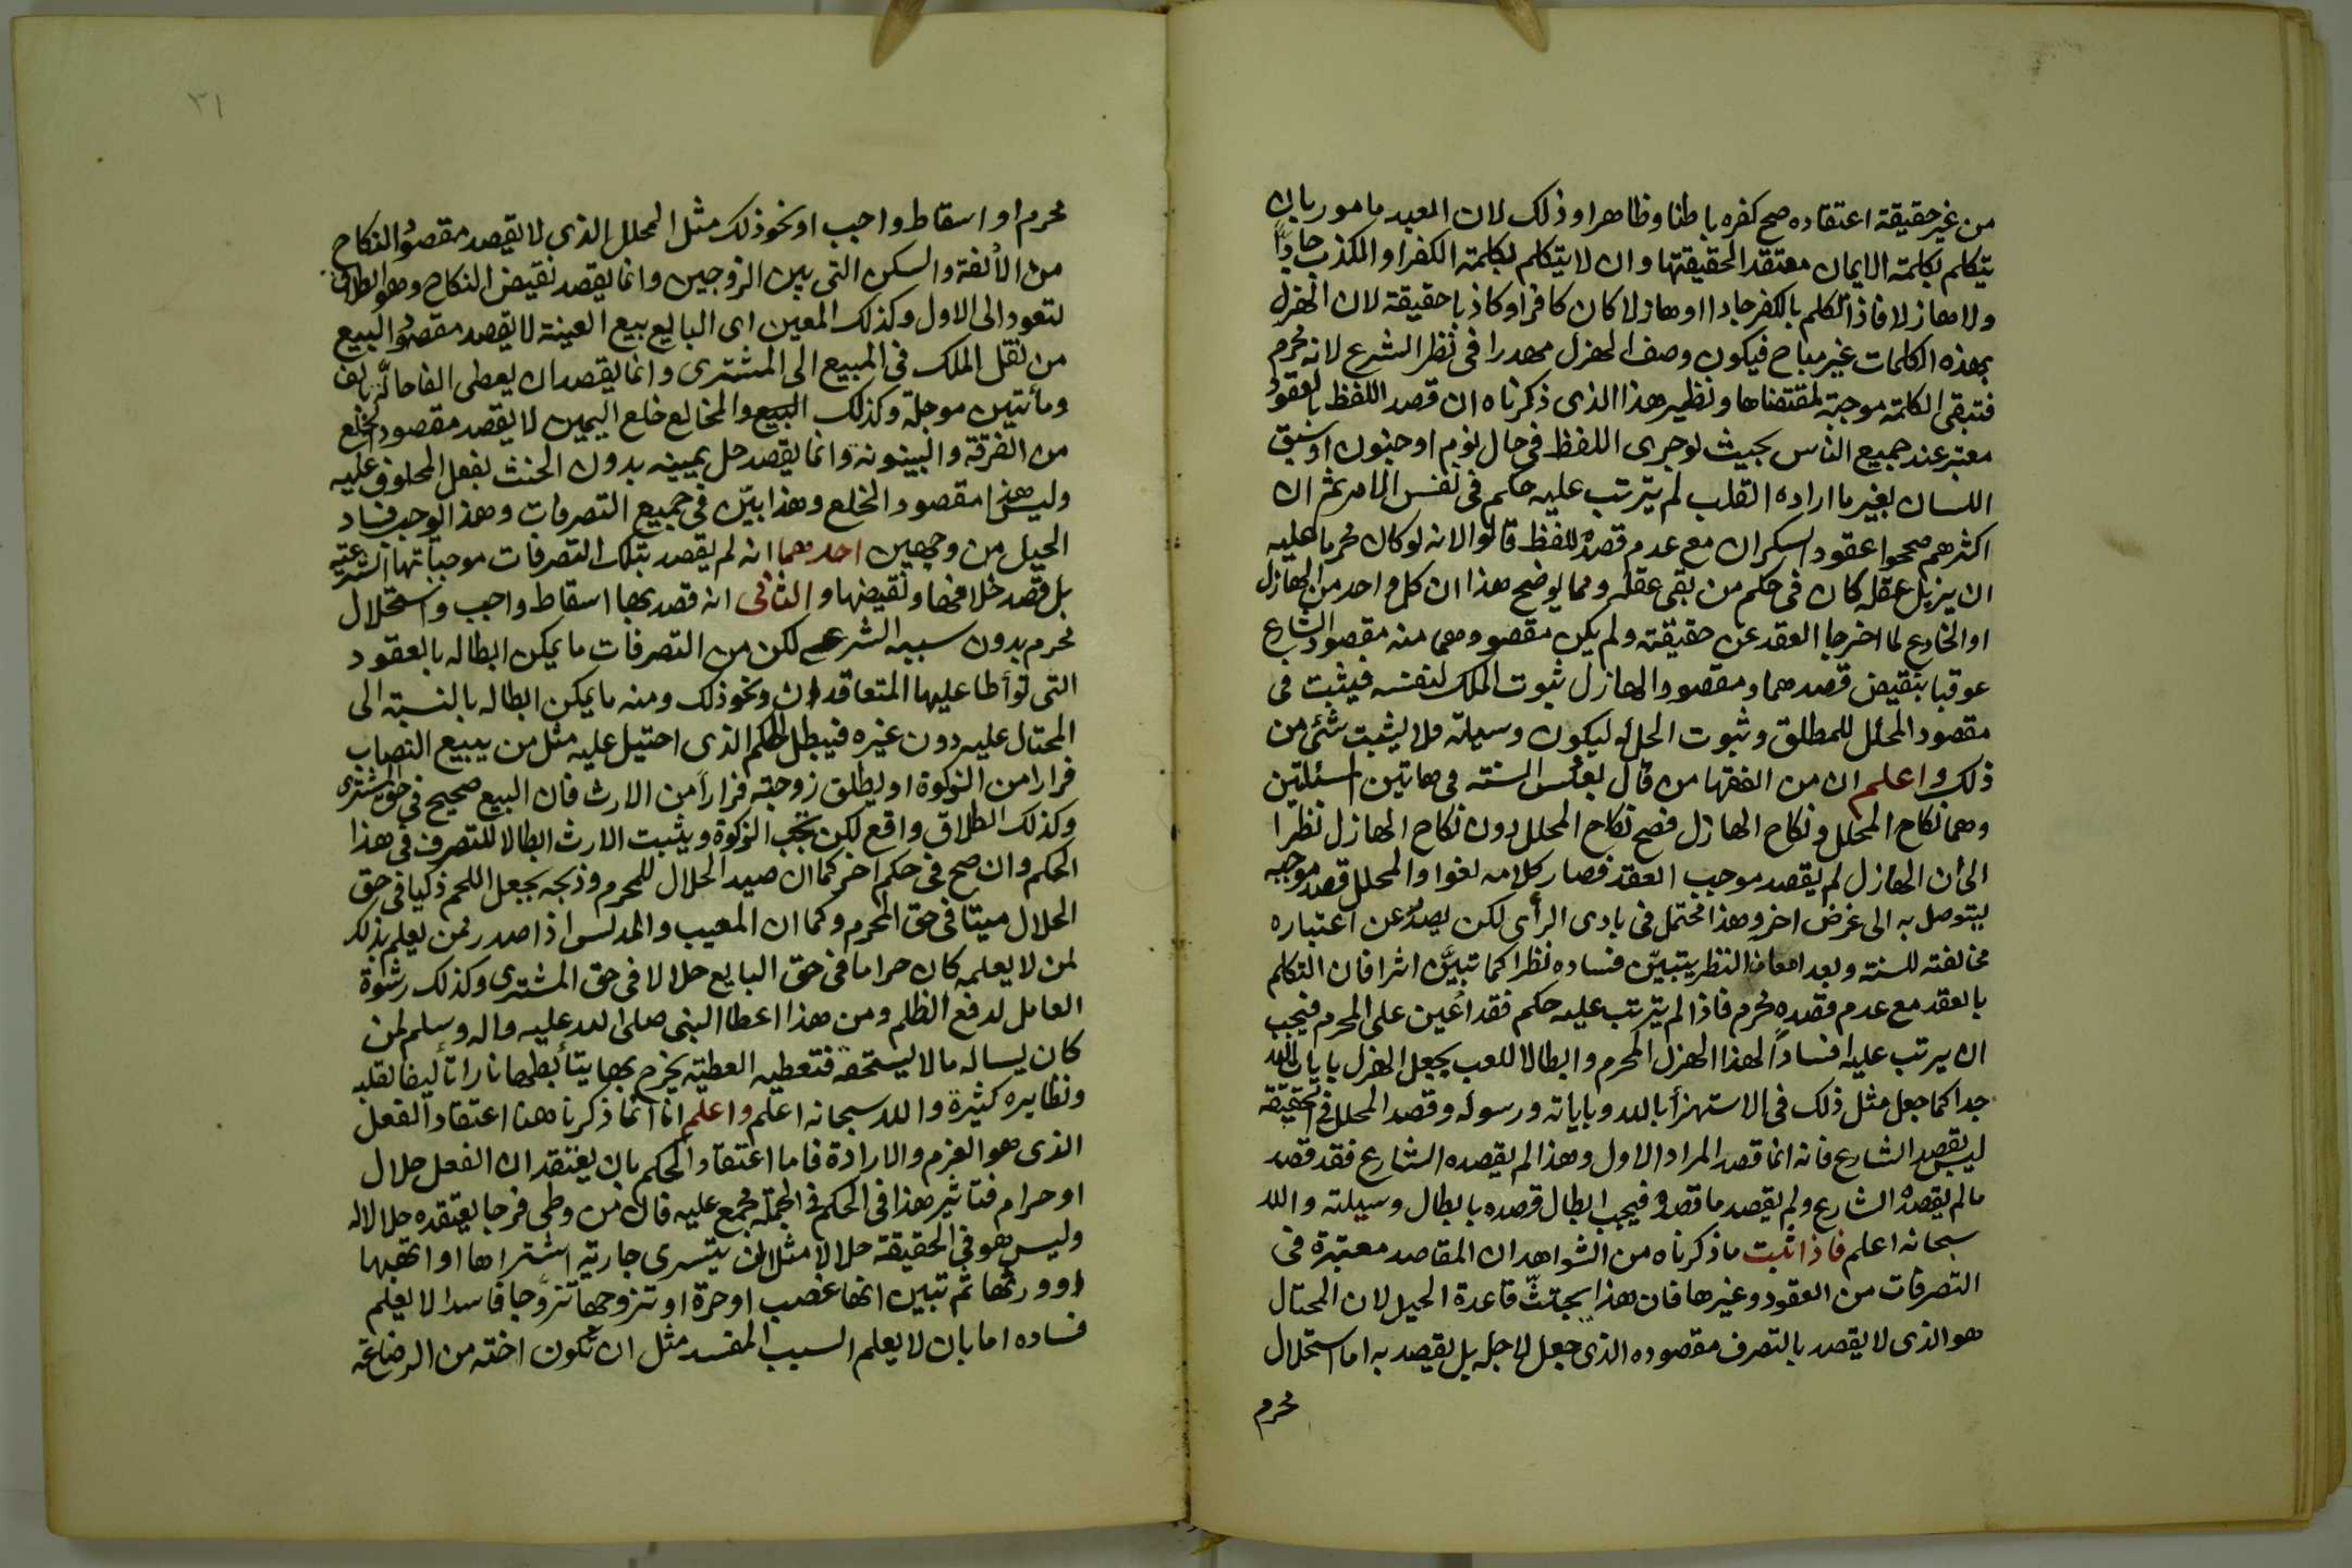 من غير حقيقة اعتقاده صح كفره باطنا وظاهرا وذلك لان العبد مامور بان
يتكلم بكلمة الايمان معتقدا لحقيقتها وان لا يتكلم بكلمة الكفر او الكذب جادّا
ولا هازلا فاذا تكلم بالكفر جادا او هازلا كان كافرا او كاذبا حقيقة لان الهزل
بهذه الكلمات غير مباح فيكون وصف الهزل مهدرا فى نظر الشرع لانه محرم
فتبقى الكلمة موجبة لمقتضاها ونظير هذا الذى ذكرناه ان قصد اللفظ بالعقود
معتبر عند جميع الناس بحيث لو جرى اللفظ فى حال نوم او جنون او سبق
اللسان بغير ما اراده القلب لم يترتب عليه حكم فى نفس الامر ثم ان
اكثرهم صححوا عقود السكران مع عدم قصده للفظ قالوا لانه لو كان محرما عليه
ان يزيل عقله كان فى حكم من بقى عقله ومما يوضح هذا ان كل واحد من الهازل
او الخادع لما اخرجا العقد عن حقيقته ولم يكن مقصودهما منه مقصود الشارع
عوقبا بنقيض قصدهما ومقصود الهازل ثبوت الملك لنفسه فيثبت فى
مقصود المحلل للمطلق وثبوت الحل له ليكون وسيلة فلا يثبت شئ من
ذلك واعلم ان من الفقها من قال بعكس السنة فى هاتين المسئلتين
وهما نكاح المحلل ونكاح الهازل فصح نكاح المحلل دون نكاح الهازل نظرا
الى ان الهازل لم يقصد موجب العقد فصار كلامه لغوا والمحلل قصد موجبه
ليتوصل به الى غرض اخر وهذا محتمل فى بادى الرأى لكن يصدّ عن اعتباره
مخالفته للسنة وبعد امعان النظر يتبيّن فساده نظرا كما تبيَّن اثرا فان التكلم
بالعقد مع عدم قصده محرم فاذا لم يترتب عليه حكم فقد أعين على المحرم فيجب
ان يرتب عليه افساداً لهذا الهزل المحرم وابطالا للعب بجعل الهزل بايات الله
جدا كما جعل مثل ذلك فى الاستهزأ بالله وباياته ورسوله وقصد المحلل فى الحقيقة
ليس بقصد الشارع فانه انما قصد المراد الاول وهذا لم يقصده الشارع فقد قصد
ما لم يقصده الشارع ولم يقصد ما قصده فيجب ابطال قصده بابطال وسيلته والله
سبحانه اعلم فاذا ثبت ما ذكرناه من الشواهد ان المقاصد معتبرة فى
التصرفات من العقود وغيرها فان هذا يجتثّ قاعدة الحيل لان المحتال
هو الذى لا يقصد بالتصرف مقصوده الذى جعل لاجله بل يقصد به اما استحلال
محرم
٣١
محرم او اسقاط واجب او نحو ذلك مثل المحلل الذى لا يقصد مقصود النكاح
من الألفة والسكن التى بين الزوجين وانما يقصد نقيض النكاح وهو الطلاق
لتعود الى الاول وكذلك المعين اى البايع بيع العينة لا يقصد مقصود البيع
من نقل الملك فى المبيع الى المشترى وانما يقصد ان يعطى الفا حالّة بالف
ومأتين موجلة وكذلك البيع والمخالع خلع اليمين لا يقصد مقصود الخلع
من الفرقة والبينونة وانما يقصد حل يمينه بدون الحنث بفعل المحلوف عليه
وليس هذا مقصود الخلع وهذا بيّن فى جميع التصرفات وهذا الوجب فساد
الحيل من وجهين احدهما انه لم يقصد بتلك التصرفات موجباتها الشرعية
بل قصد خلافها ونقيضها والثانى انه قصد بها اسقاط واجب واستحلال
محرم بدون سببه الشرعى لكن من التصرفات ما يمكن ابطاله بالعقود
التى تواطا عليها المتعاقدان ونحو ذلك ومنه ما يمكن ابطاله بالنسبة الى
المحتال عليه دون غيره فيبطل الحكم الذى احتيل عليه مثل من يبيع النصاب
فرارا من الزكوة او يطلق زوجته فراراً من الارث فان البيع صحيح فى حق المشترى
وكذلك الطلاق واقع لكن تجب الزكوة ويثبت الارث ابطالا للتصرف فى هذا
الحكم وان صح فى حكم اخر كما ان صيد الحلال للمحرم وذبحه يجعل اللحم ذكيا فى حق
الحلال ميتا فى حق المحرم وكما ان المعيب والمدلس اذا صدر ممن يعلم بذلك
لمن لا يعلمه كان حراما فى حق البايع حلالا فى حق المشترى وكذلك رشوة
العامل لدفع الظلم ومن هذا اعطا النبى صلى الله عليه واله وسلم لمن
كان يساله مالا يستحقه فتعطيه العطية يخرج بها يتأبطها نارا تأليفا لقلبه
ونظايره كثيرة والله سبحانه اعلم واعلم انا انما ذكرنا هنا اعتقاد الفعل
الذى هو العزم والارادة فاما اعتقاد الحكم بان يعتقد ان الفعل حلال
او حرام فتاثير هذا فى الحكم فى الجملة مجمع عليه فان من وطى فرجا يعتقده حلالا له
وليس هو فى الحقيقة حلالا مثل ان يتسرى جارية اشتراها او اتهبها
او ورثها ثم تبين انها غصب او حرة او تزوجها تزوّجا فاسدا لا يعلم
فساده اما بان لا يعلم السبب المفسد مثل ان تكون اخته من الرضاعة